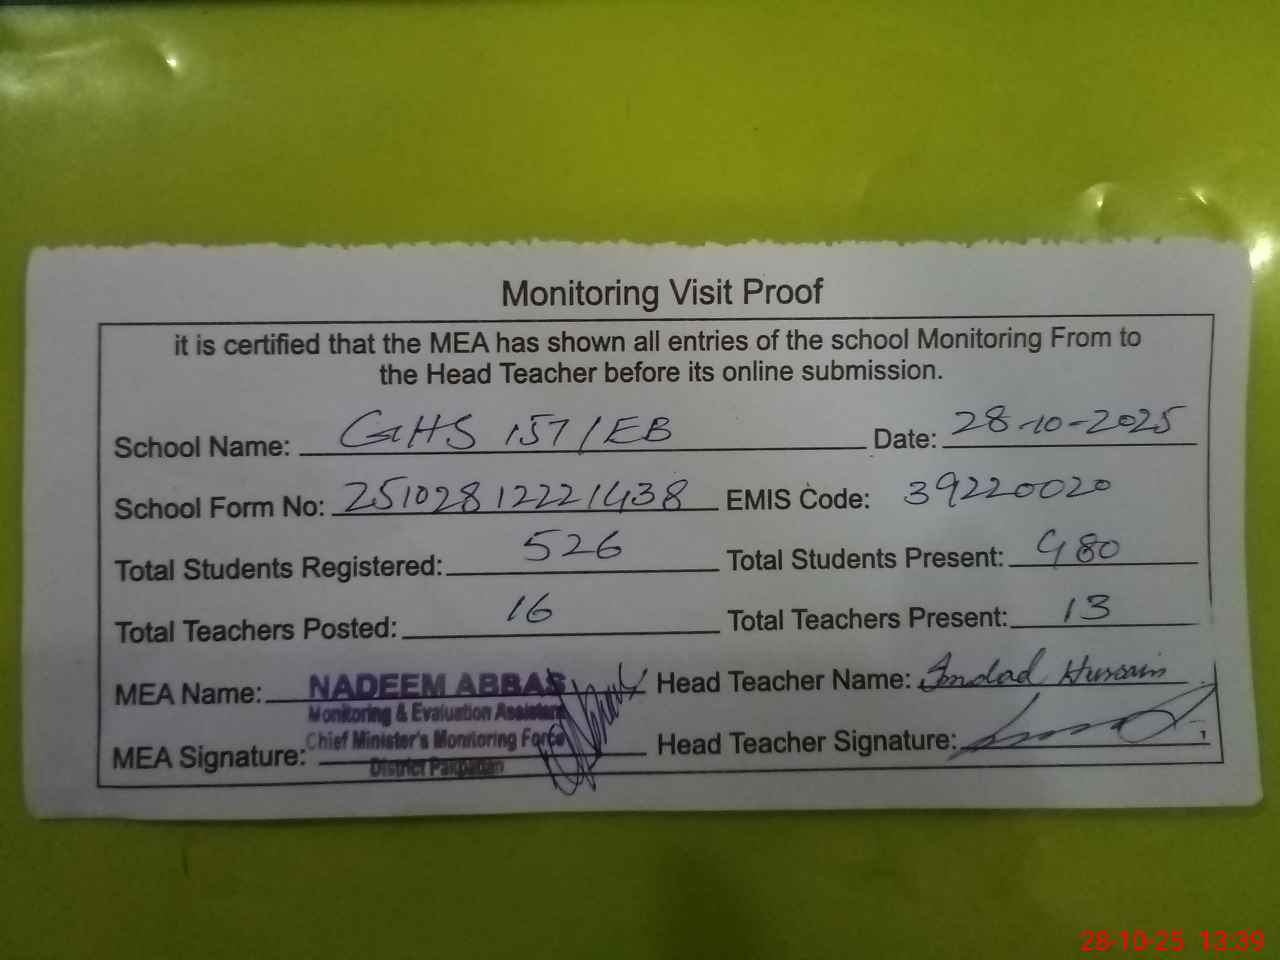 Monitoring Visit Proof
it is certified that the MEA has shown all entries of the school Monitoring From to
the Head Teacher before its online submission.
School Name: GHS 157/EB Date: 28-10-2025
School Form No: 25102812221438 EMIS Code: 39220020
Total Students Registered: 526 Total Students Present: 480
Total Teachers Posted: 16 Total Teachers Present: 13
MEA Name: NADEEM ABBAS Head Teacher Name: Imdad Hussain
Monitoring & Evaluation Assistant
Chief Minister's Monitoring Force
MEA Signature: Head Teacher Signature:
District Pakpattan
28-10-25 13:39